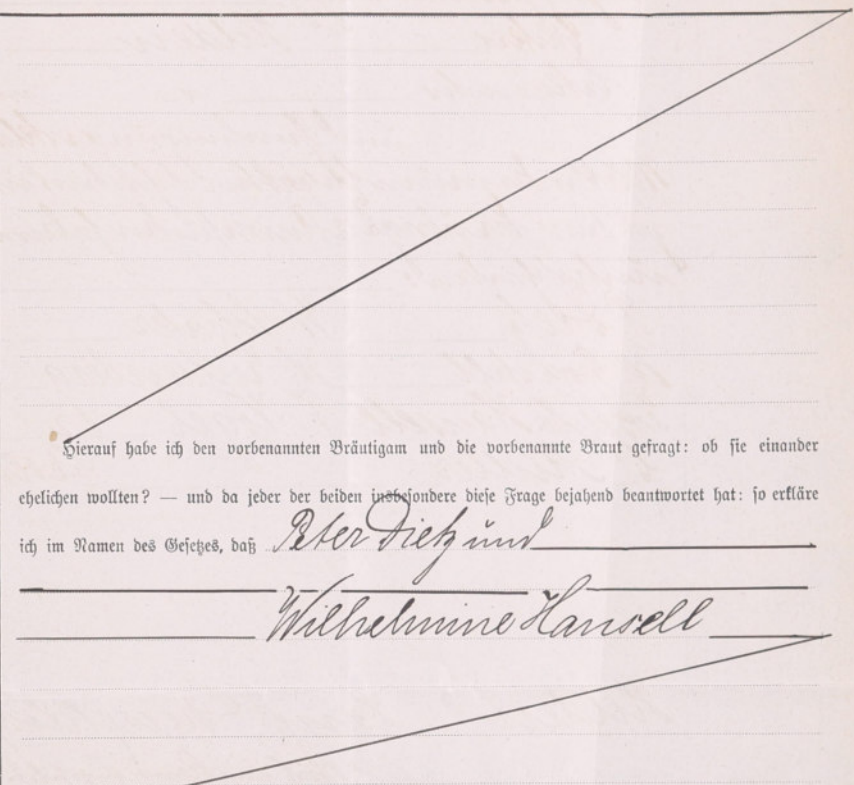 Hierauf habe ich den vorbenannten Bräutigam und die vorbenannte Braut gefragt: ob sie einander
ehelichen wollten? — und da jeder der beiden insbesondere diese Frage bejahend beantwortet hat: so erkläre
ich im Namen des Gesetzes, daß Peter Dietz und
Wilhelmine Hansell